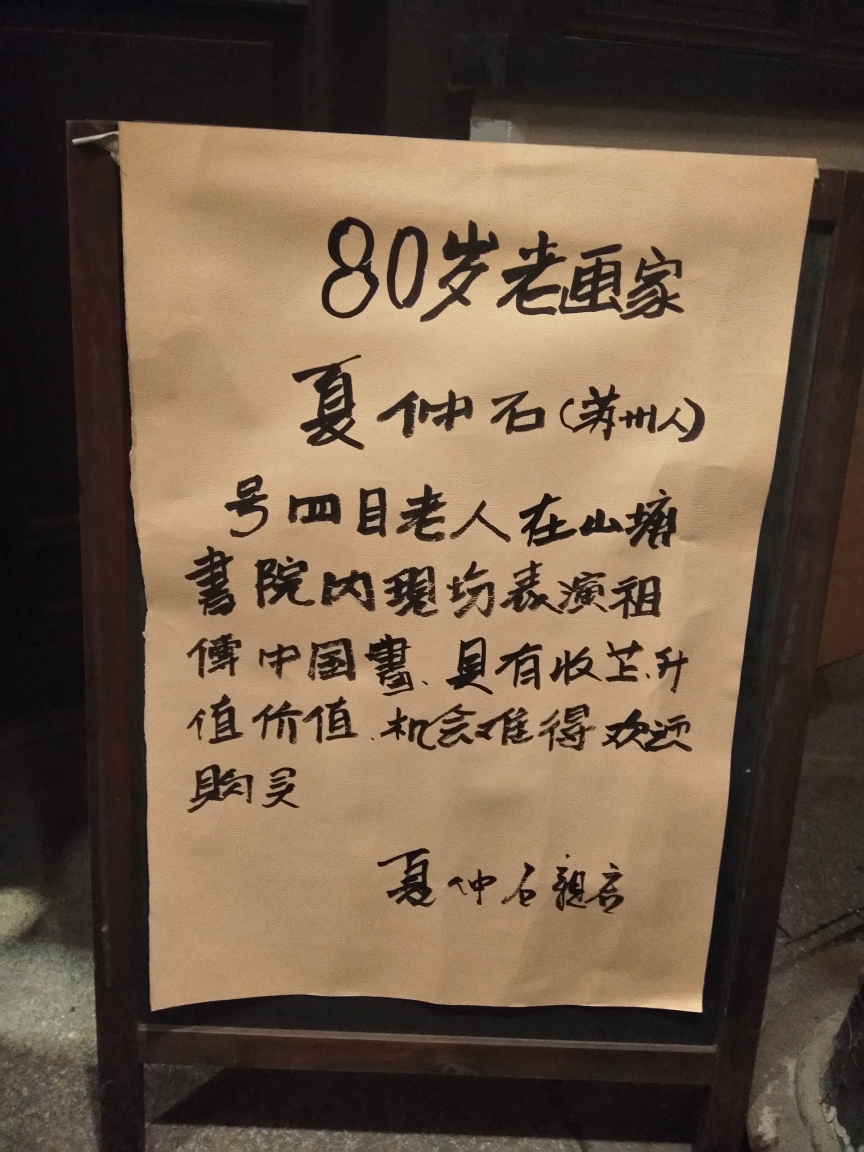 80岁老画家
夏仲石(苏州人)
号四目老人在山塘
書院内現场表演祖
傳中国書、具有收芷、升
值价值、机会难得欢迎
购买
夏仲石親言